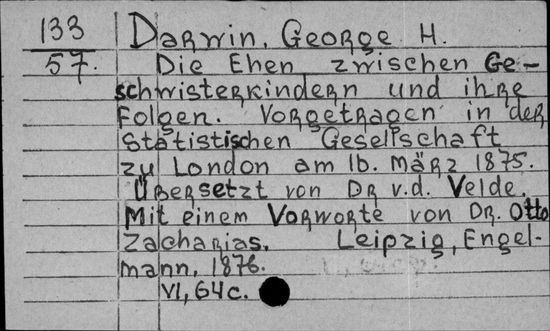 133
57.
Darwin, George H.
Die Ehen zwischen Ge-
schwisterkindern und ihre
Folgen. Vorgetragen in der
Statistischen Gesellschaft
zu London am 16. März 1875.
Übersetzt von Dr v.d. Velde.
Mit einem Vorworte von Dr. Otto
Zacharias. Leipzig, Engel-
mann, 1876.
VI, 64c.